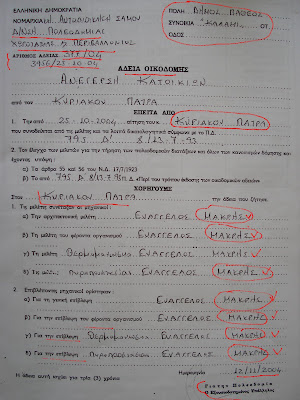 ΕΛΛΗΝΙΚΗ ΔΗΜΟΚΡΑΤΙΑ
ΝΟΜΑΡΧ. ΑΥΤΟΔΙΟΙΚΗΣΗ ΣΑΜΟΥ
Δ/ΝΣΗ ΠΟΛΕΟΔΟΜΙΑΣ
ΧΩΡΟΤΑΞΙΑΣ & ΠΕΡΙΒΑΛΛΟΝΤΟΣ
ΑΡΙΘΜΟΣ ΑΔΕΙΑΣ 377/04
3956/25-10-04
ΠΟΛΗ ΔΗΜΟΣ ΒΑΘΕΟΣ
ΣΥΝΟΙΚΙΑ "ΚΑΛΑΜΙ" ΟΤ.
ΟΔΟΣ
ΑΔΕΙΑ ΟΙΚΟΔΟΜΗΣ
ΑΝΕΓΕΡΣΗ ΚΑΤΟΙΚΙΩΝ
από τον ΚΥΡΙΑΚΟΥ ΠΑΤΡΑ
ΕΠΕΙΤΑ ΑΠΟ
1. Την από 25-10-2004 αίτηση του/κ ΚΥΡΙΑΚΟΥ ΠΑΤΡΑ
που συνοδεύεται από τη μελέτη και τα λοιπά δικαιολογητικά σύμφωνα με το Π.Δ.
795 Δ' 8/13.7.93
2. Τον έλεγχο των μελετών για την τήρηση των πολεοδομικών διατάξεων και όλων των κανονισμών δόμησης και
έχοντας υπόψη :
α) Τα άρθρα 55 και 56 του Ν.Δ. 17/7/1923
β) Το από 795 Δ' 8/13.7.93 Π.Δ. «Περί του τρόπου έκδοσης των οικοδομικών αδειών»
ΧΟΡΗΓΟΥΜΕ
Στον ΚΥΡΙΑΚΟΥ ΠΑΤΡΑ την άδεια που ζήτησε.
1. Τις μελέτες συνέταξαν οι μηχανικοί :
α) Την αρχιτεκτονική μελέτη ΕΥΑΓΓΕΛΟΣ ΜΑΚΡΗΣ
β) Τη μελέτη του φέροντα οργανισμού ΕΥΑΓΓΕΛΟΣ ΜΑΚΡΗΣ
γ) Τη μελέτη Θερμομόνωσης ΕΥΑΓΓΕΛΟΣ ΜΑΚΡΗΣ
δ) Τη μελέτη Πυροπροστασίας ΕΥΑΓΓΕΛΟΣ ΜΑΚΡΗΣ
2. Επιβλέποντες μηχανικοί ορίστηκαν :
α) Για τη γενική επίβλεψη ΕΥΑΓΓΕΛΟΣ ΜΑΚΡΗΣ
β) Για την επίβλεψη του φέροντα οργανισμού ΕΥΑΓΓΕΛΟΣ ΜΑΚΡΗΣ
γ) Για την επίβλεψη Θερμομόνωσης ΕΥΑΓΓΕΛΟΣ ΜΑΚΡΗΣ
δ) Για την επίβλεψη Πυροπροστασίας ΕΥΑΓΓΕΛΟΣ ΜΑΚΡΗΣ
Η άδεια αυτή ισχύει για τρία (3) χρόνια
Ημερομηνία 12/11/2004